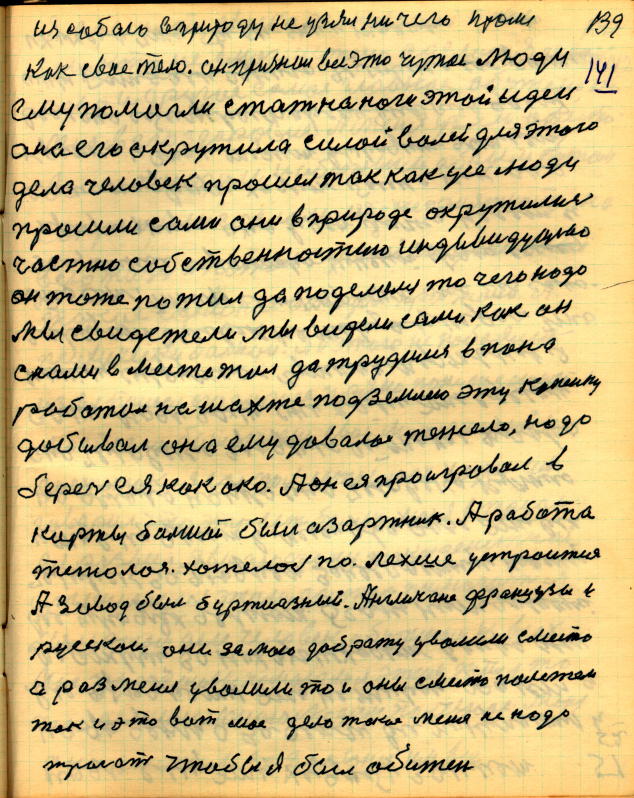 из собою в природу не узял ничего кроме
139
как свое тело. он признал все это чужое люди
141
Ему помогли стат на ноги этой идеи
она его окрутила силой волей для этого
дела человек прошел так как усе люди
прошли сами они в природе окружили
частно собственностию индывидуално
он тоже пожил да поделал то чего надо
мы свидетели мы видели сами как он
снами вместе жил да трудился в пана
работал на шахте подземлею эту копейку
добывал она ему давалас тежело, надо
беречся как око. А он ея проигровал в
карты балшой был азартник. А работа
тежолая. хотелос по. лехше устроится
А завод был буржиазный. Англичане французы и
русский. они за мою доброту уволили сместо
а раз меня уволили то и оны сместо полетели
так и это вот мое дело такое меня не надо
трогат чтобы я был обижен